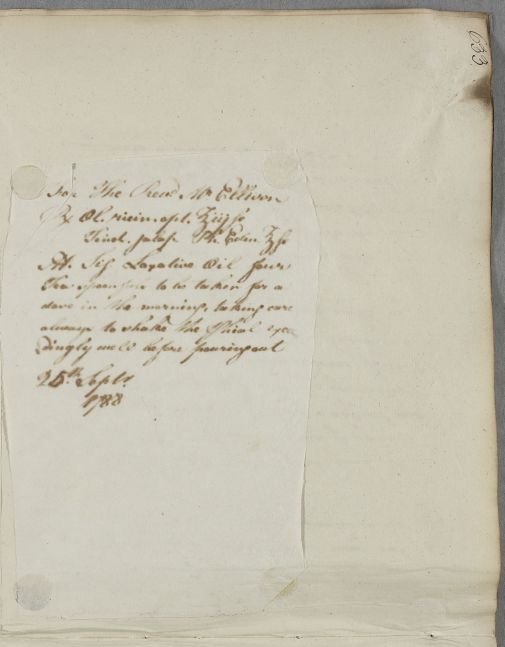 633
For The Revd Mr Ellison
℞ Ol. ricini opt. ℥iij ſs
Tinct. Jalap. ℥ſs
M. Sig. Laxative Oil four
Tea spoonfuls to be taken for a
dose in the morning, taking care
always to shake the Phial excee
dingly well before pouring out
25th Septr
1788